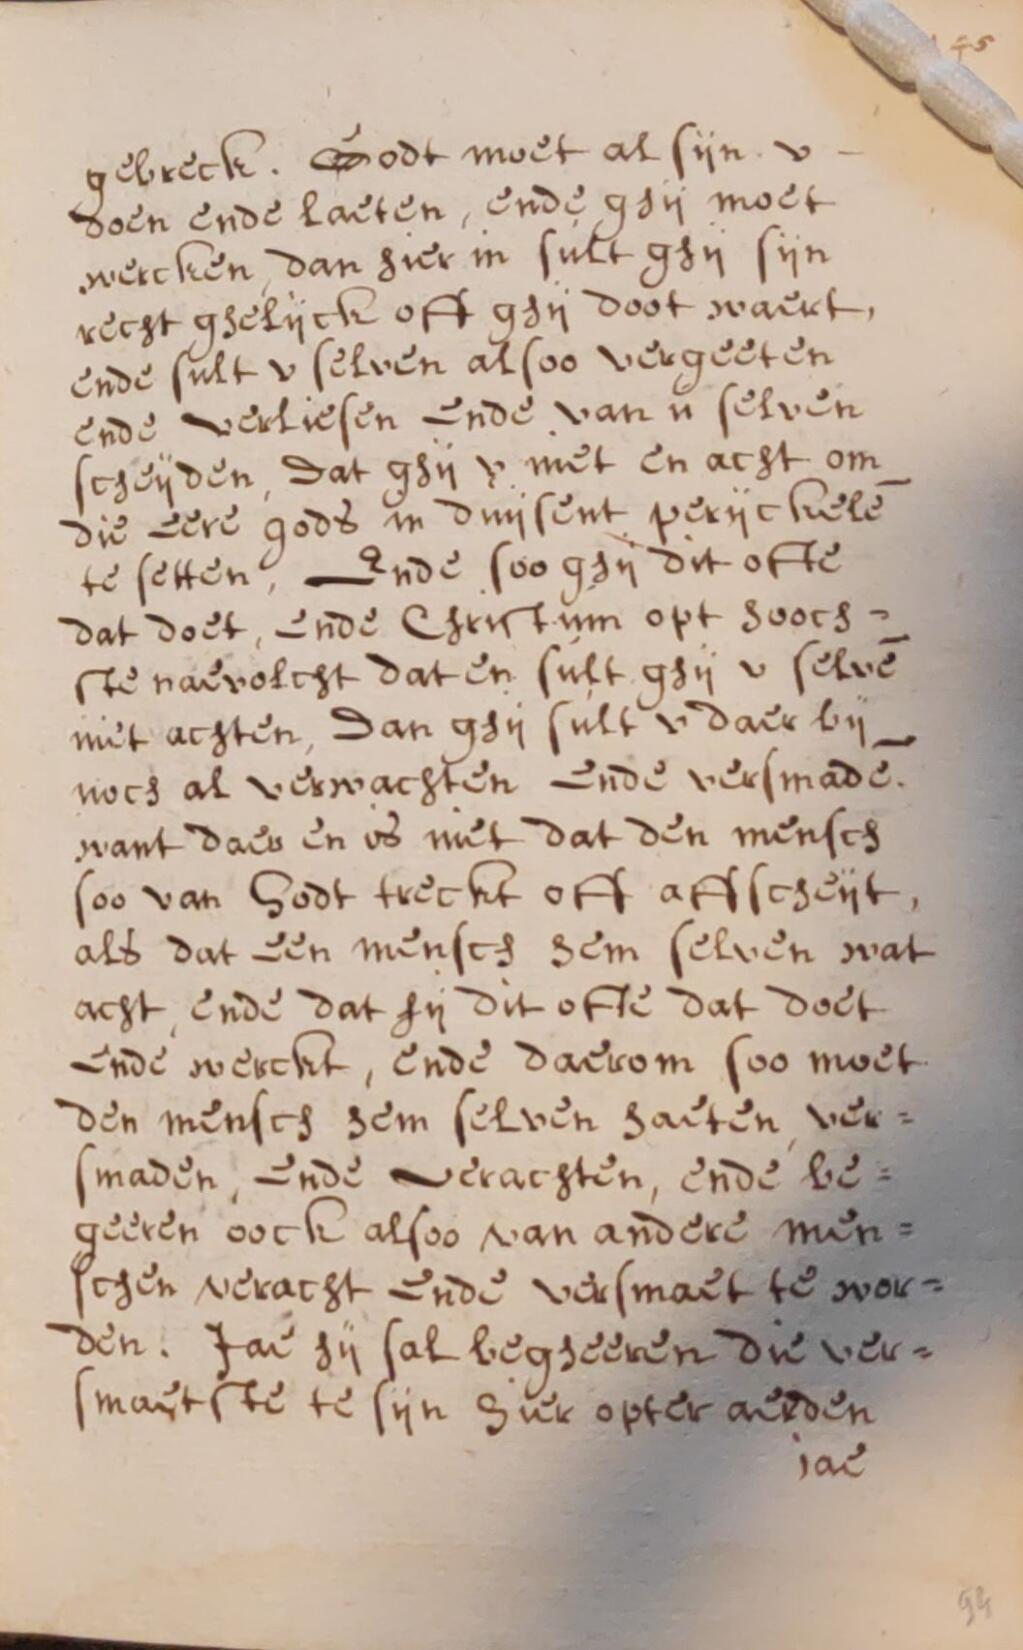 gebreck. Godt moet al sijn v
doen ende laeten, ende ghij moet
wercken, dan hier in sult ghij sijn
recht ghelijck off ghij doot waert,
ende sult v selven alsoo vergeeten
ende verliesen ende van u selven
scheijden, Dat ghij v niet en acht om
die eere gods in duijsent perijckelē
te setten, Ende soo ghij dit ofte
dat doet, ende Christum opt hooch=
ste naevolcht dat en sult ghij v selvē
niet achten, Dan ghij sult v daer bij
noch al verwachten ende versmadē.
want daer en is niet dat den mensch
soo van Godt treckt off affscheijt,
als dat een mensch hem selven wat
acht, ende dat hij dit ofte dat doet
ende werckt, ende daerom soo moet
den mensch hem selven haeten, ver=
smaden, ende verachten, ende be=
geeren oock alsoo van andere men=
schen veracht ende versmaet te wor=
den. Jae hij sal begheeren die ver=
smaetste te sijn hier opter aerden
jae
94